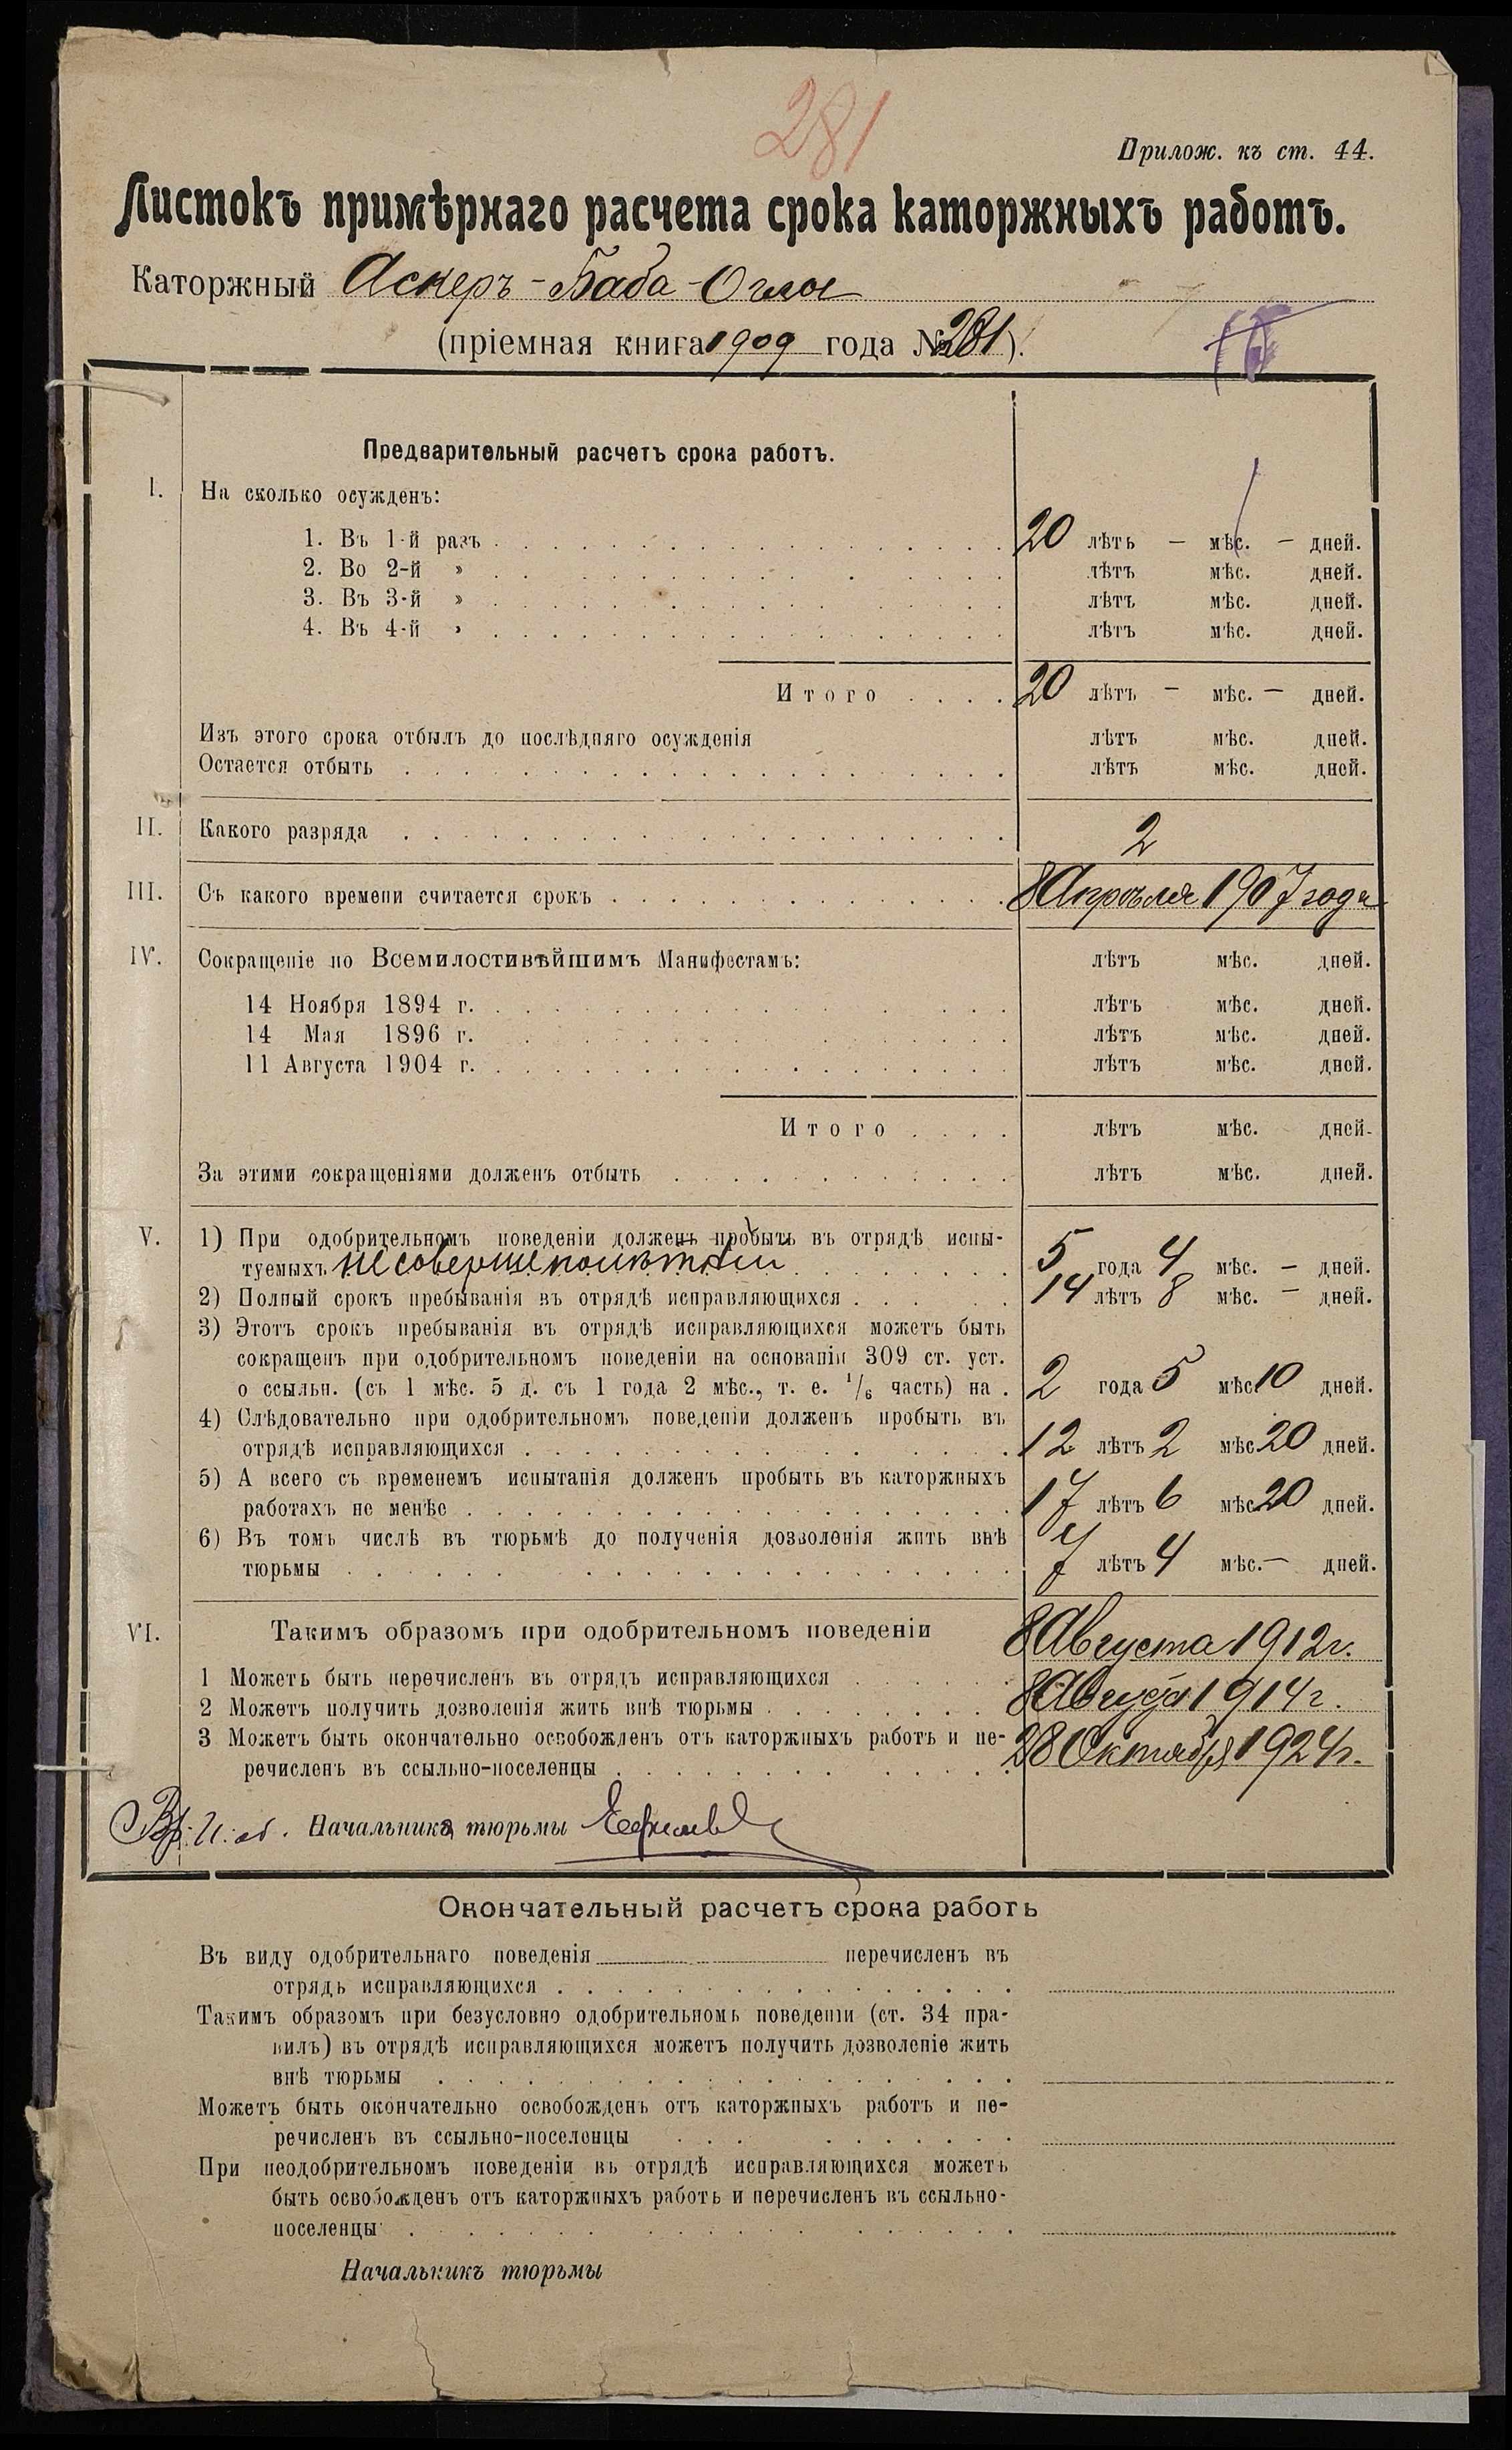 281
Прилож. къ ст. 44.
Листокъ примѣрнаго расчета срока каторжныхъ работъ.
Каторжный Аскеръ-Баба-Оглы
(пріемная книга 1909 года № 281).
Предварительный расчетъ срока работъ.
I. На сколько осужденъ:
1. Въ 1-й разъ . . . 20 лѣтъ — мѣс. — дней.
2. Во 2-й » . . . лѣтъ мѣс. дней.
3. Въ 3-й » . . . лѣтъ мѣс. дней.
4. Въ 4-й » . . . лѣтъ мѣс. дней.
Итого . . . . 20 лѣтъ — мѣс. — дней.
Изъ этого срока отбылъ до послѣдняго осужденія лѣтъ мѣс. дней.
Остается отбыть . . . лѣтъ мѣс. дней.
II. Какого разряда . . . 2
III. Съ какого времени считается срокъ . . . 8 Апрѣля 1907 года
IV. Сокращеніе по Всемилостивѣйшимъ Манифестамъ: лѣтъ мѣс. дней.
14 Ноября 1894 г. . . . лѣтъ мѣс. дней.
14 Мая 1896 г. . . . лѣтъ мѣс. дней.
11 Августа 1904 г. . . . лѣтъ мѣс. дней.
Итого . . . . лѣтъ мѣс. дней.
За этими сокращеніями долженъ отбыть . . . лѣтъ мѣс. дней.
V. 1) При одобрительномъ поведеніи долженъ пробыть въ отрядѣ испы-
туемыхъ . . . 5 года 4 мѣс. — дней.
2) Полный срокъ пребыванія въ отрядѣ исправляющихся . . . 14 лѣтъ 8 мѣс. — дней.
3) Этотъ срокъ пребыванія въ отрядѣ исправляющихся можетъ быть
сокращенъ при одобрительномъ поведеніи на основаніи 309 ст. уст.
о ссыльн. (съ 1 мѣс. 5 д. съ 1 года 2 мѣс., т. е. 1/6 часть) на . 2 года 5 мѣс 10 дней.
4) Слѣдовательно при одобрительномъ поведеніи долженъ пробыть въ
отрядѣ исправляющихся . . . 12 лѣтъ 2 мѣс 20 дней.
5) А всего съ временемъ испытанія долженъ пробыть въ каторжныхъ
работахъ не менѣе . . . 17 лѣтъ 6 мѣс 20 дней.
6) Въ томъ числѣ въ тюрьмѣ до полученія дозволенія жить внѣ
тюрьмы . . . 7 лѣтъ 4 мѣс. — дней.
VI. Такимъ образомъ при одобрительномъ поведеніи
1 Можетъ быть перечисленъ въ отрядъ исправляющихся . . . 8 Августа 1912 г.
2 Можетъ получить дозволенія жить внѣ тюрьмы . . . 8 Августа 1914 г.
3 Можетъ быть окончательно освобожденъ отъ каторжныхъ работъ и пе-
речисленъ въ ссыльно-поселенцы . . . 28 Октября 1924 г.
Вр. И. об. Начальника тюрьмы
Окончательный расчетъ срока работъ
Въ виду одобрительнаго поведенія перечисленъ въ
отрядъ исправляющихся . . .
Такимъ образомъ при безусловно одобрительномъ поведеніи (ст. 34 пра-
вилъ) въ отрядѣ исправляющихся можетъ получить дозволеніе жить
внѣ тюрьмы . . .
Можетъ быть окончательно освобожденъ отъ каторжныхъ работъ и пе-
речисленъ въ ссыльно-поселенцы . . .
При неодобрительномъ поведеніи въ отрядѣ исправляющихся можетъ
быть освобожденъ отъ каторжныхъ работъ и перечисленъ въ ссыльно-
поселенцы . . .
Начальникъ тюрьмы